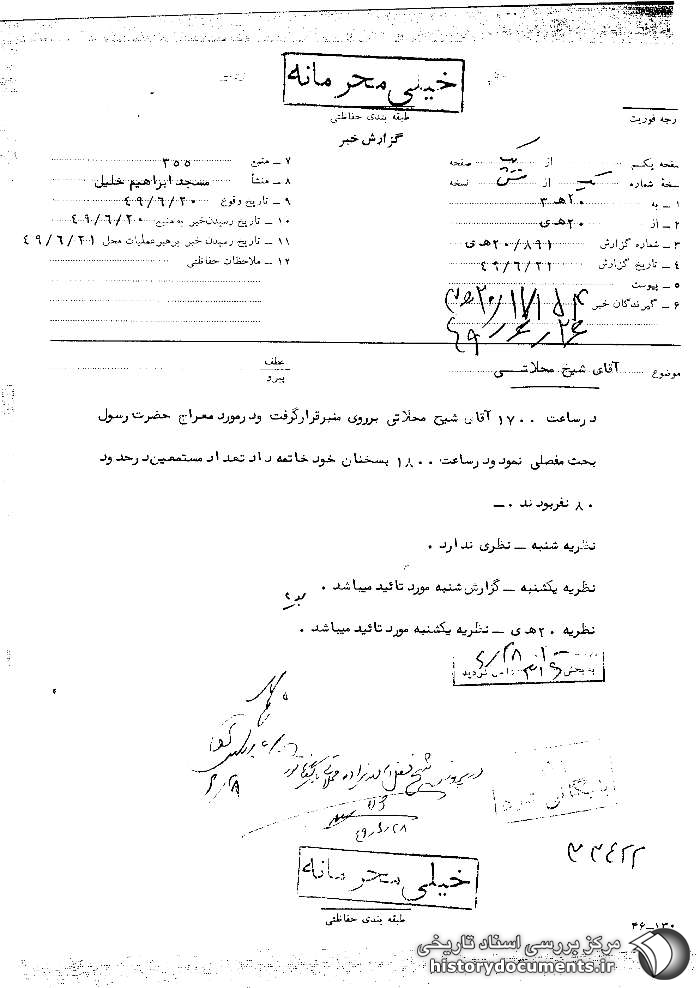 خیلی محرمانه
طبقه بندی حفاظتی
گزارش خبر
رجه فوریت
صفحه یکم از یک صفحه
سخهٔ شماره یک از شش نسخه
۱ – به ۲۰هـ ۳
۲ – از ۲۰هـ‌ی
۳ – شماره گزارش ۲۰/۸۹۱هـ‌ی
۴ – تاریخ گزارش ۴۹/۶/۲۱
۵ – پیوست
۶ – گیرندگان خبر
۷ – منبع ۳۵۵
۸ – منشأ مسجد ابراهیم خلیل
۹ – تاریخ وقوع ۴۹/۶/۲۰
۱۰ – تاریخ رسیدن خبر به منبع ۴۹/۶/۲۰
۱۱ – تاریخ رسیدن خبر برهبر عملیات محل ۴۹/۶/۲۱
۱۲ – ملاحظات حفاظتی
۴۹/۶/۲۶
موضوع آقای شیخ محلاتی
عطف
پیرو
درساعت ۱۷۰۰ آقای شیخ محلاتی برروی منبرقرارگرفت ودرمورد معراج حضرت رسول
بحث مفصلی نمود ودرساعت ۱۸۰۰ بسخنان خود خاتمه داد تعداد مستمعین درحدود
۸۰ نفربودند .–
نظریه شنبه – نظری ندارد .
نظریه یکشنبه – گزارش شنبه مورد تائید میباشد .
نظریه ۲۰هـ‌ی – نظریه یکشنبه مورد تائید میباشد .
به بخش ۳۱۶
۶/۲۸
در پرونده شیخ فضل‌اله زاده محلاتی
۴۹/۶/۲۸
بایگانی شود
۳۳۴۲۲
خیلی محرمانه
طبقه بندی حفاظتی
۴۶-۱۳۰
مرکز بررسی اسناد تاریخی
historydocuments.ir